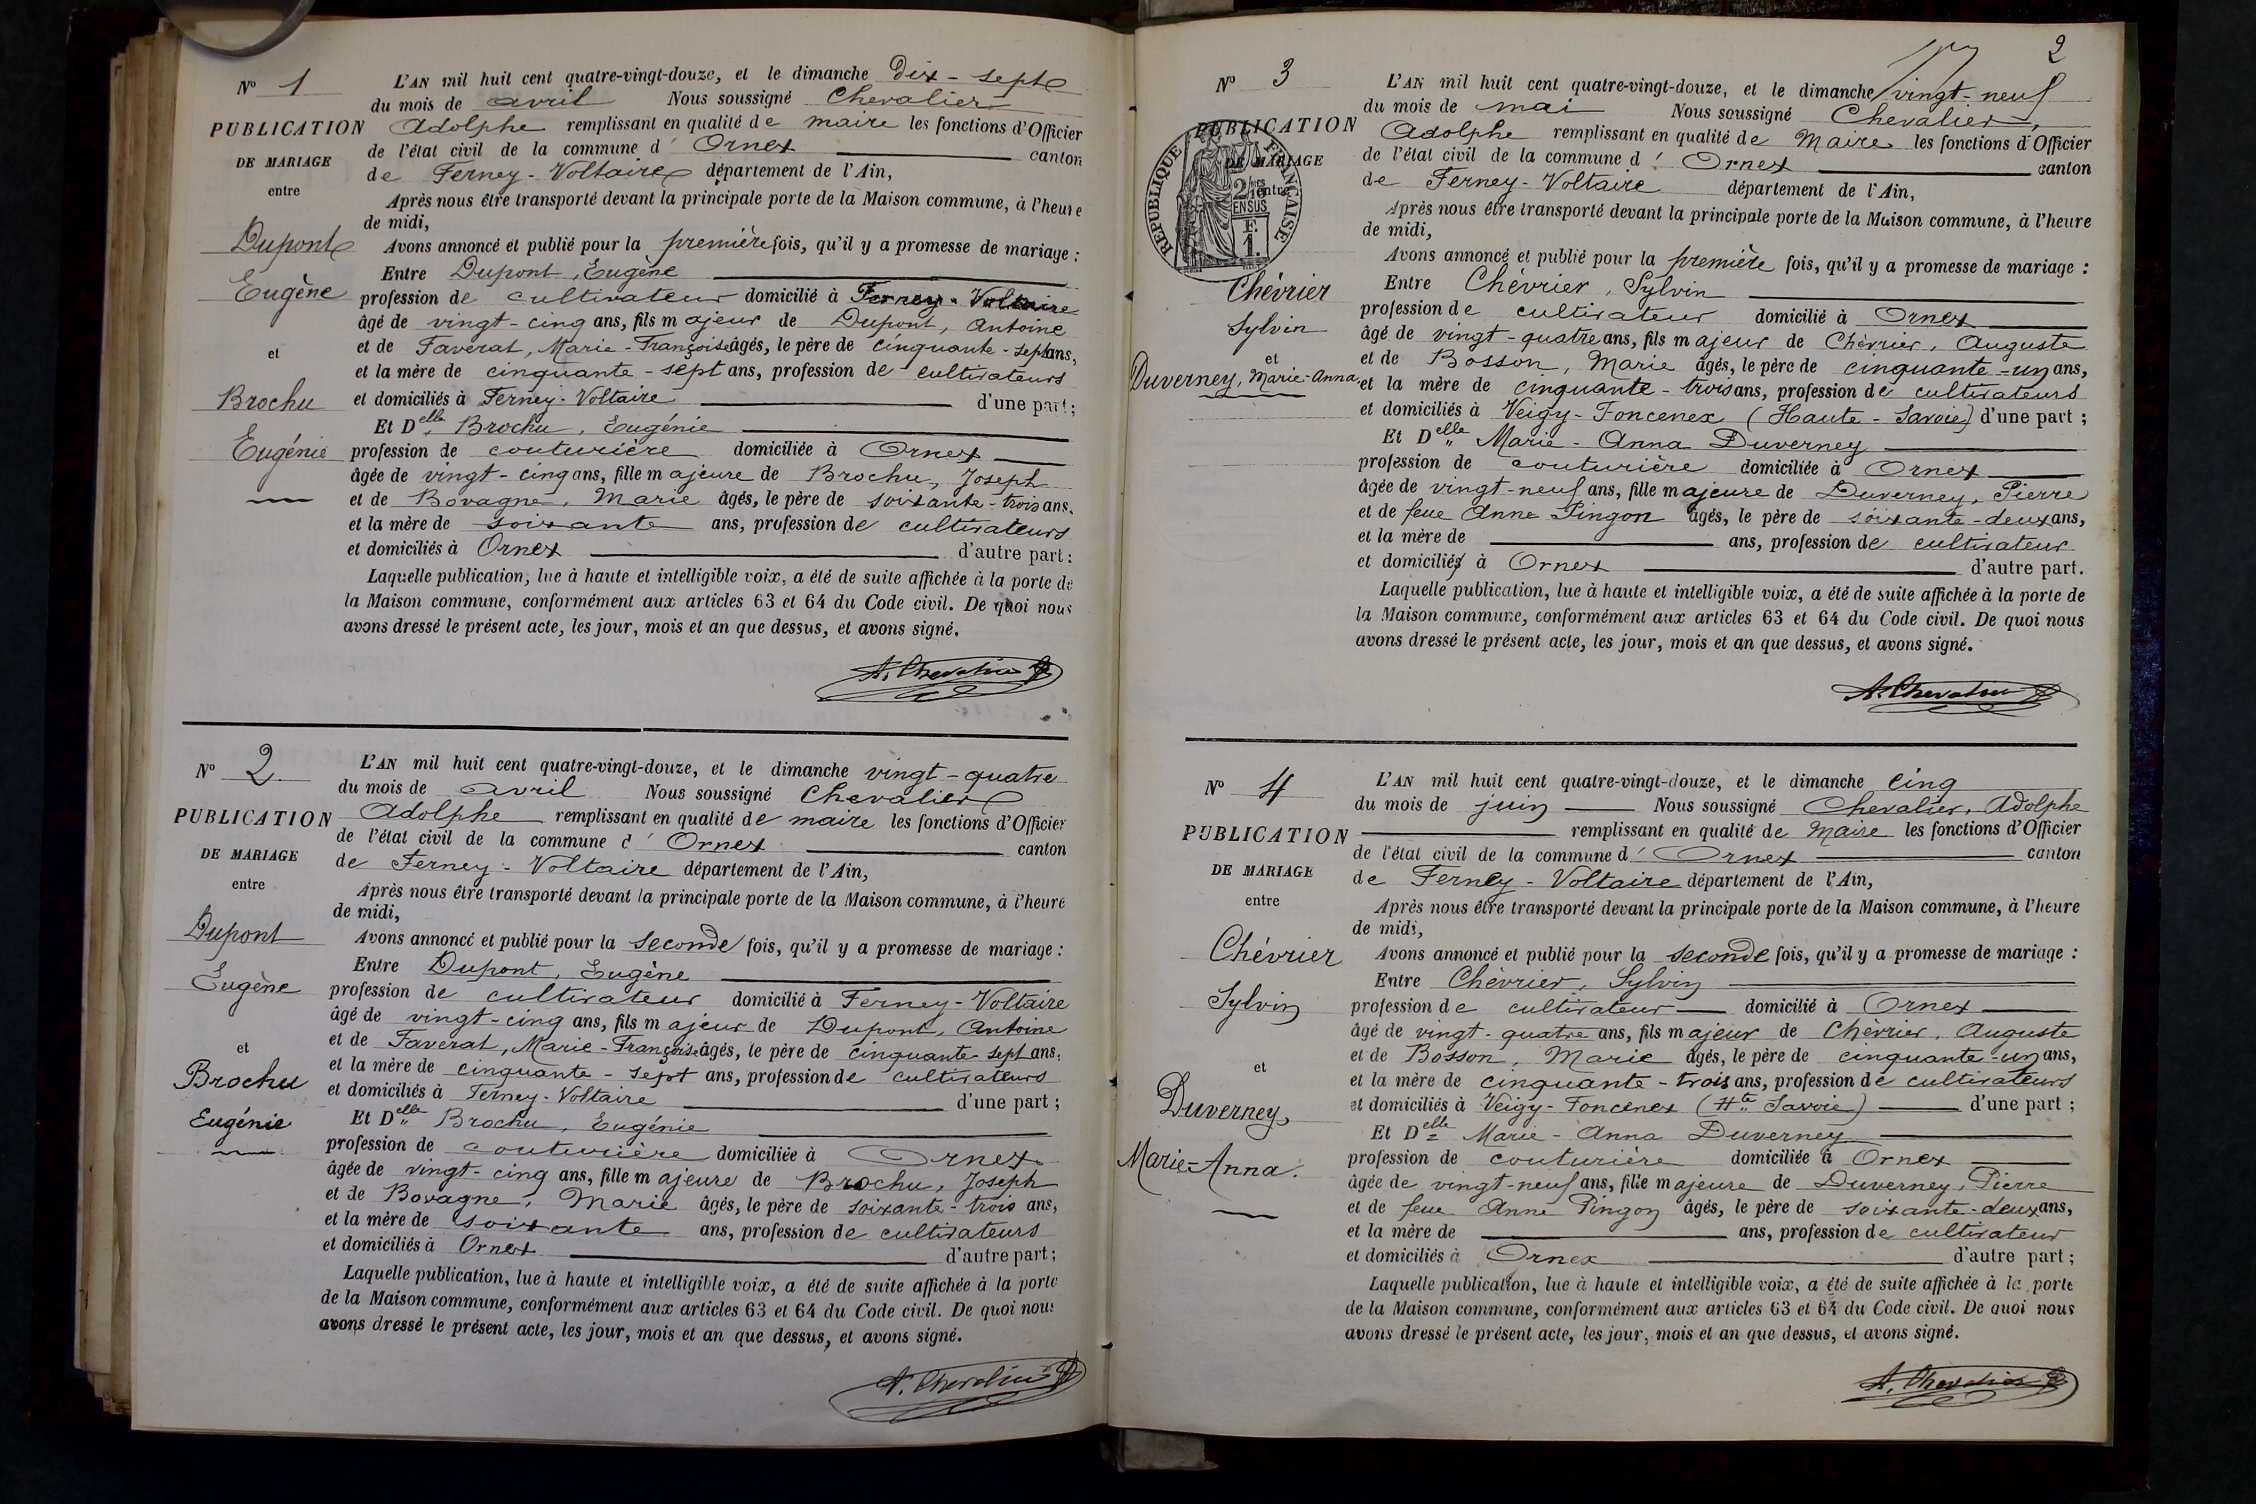 Nº 1
PUBLICATION
DE MARIAGE
entre
Dupont
Eugène
et
Brochu
Eugénie
L'AN mil huit cent quatre-vingt-douze, et le dimanche Dix-sept
du mois de avril Nous soussigné Chevalier
Adolphe remplissant en qualité de maire les fonctions d'Officier
de l'état civil de la commune d' Ornex canton
de Ferney-Voltaire département de l'Ain,
Après nous être transporté devant la principale porte de la Maison commune, à l'heure
de midi,
Avons annoncé et publié pour la première fois, qu'il y a promesse de mariage :
Entre Dupont, Eugène
profession de cultivateur domicilié à Ferney-Voltaire
âgé de vingt-cinq ans, fils majeur de Dupont, Antoine
et de Faverat, Marie-Françoise âgés, le père de cinquante-sept ans,
et la mère de cinquante-sept ans, profession de cultivateurs
et domiciliés à Ferney-Voltaire d'une part ;
Et Delle Brochu, Eugénie
profession de couturière domiciliée à Ornex
âgée de vingt-cinq ans, fille majeure de Brochu, Joseph
et de Bovagne, Marie âgés, le père de soixante-trois ans,
et la mère de soixante ans, profession de cultivateurs
et domiciliés à Ornex d'autre part :
Laquelle publication, lue à haute et intelligible voix, a été de suite affichée à la porte de
la Maison commune, conformément aux articles 63 et 64 du Code civil. De quoi nous
avons dressé le présent acte, les jour, mois et an que dessus, et avons signé.
A. Chevalier
Nº 2
PUBLICATION
DE MARIAGE
entre
Dupont
Eugène
et
Brochu
Eugénie
L'AN mil huit cent quatre-vingt-douze, et le dimanche vingt-quatre
du mois de avril Nous soussigné Chevalier
Adolphe remplissant en qualité de maire les fonctions d'Officier
de l'état civil de la commune d' Ornex canton
de Ferney-Voltaire département de l'Ain,
Après nous être transporté devant la principale porte de la Maison commune, à l'heure
de midi,
Avons annoncé et publié pour la seconde fois, qu'il y a promesse de mariage :
Entre Dupont, Eugène
profession de cultivateur domicilié à Ferney-Voltaire
âgé de vingt-cinq ans, fils majeur de Dupont, Antoine
et de Faverat, Marie-Françoise âgés, le père de cinquante-sept ans,
et la mère de cinquante-sept ans, profession de cultivateurs
et domiciliés à Ferney-Voltaire d'une part ;
Et Delle Brochu, Eugénie
profession de couturière domiciliée à Ornex
âgée de vingt-cinq ans, fille majeure de Brochu, Joseph
et de Bovagne, Marie âgés, le père de soixante-trois ans,
et la mère de soixante ans, profession de cultivateurs
et domiciliés à Ornex d'autre part ;
Laquelle publication, lue à haute et intelligible voix, a été de suite affichée à la porte
de la Maison commune, conformément aux articles 63 et 64 du Code civil. De quoi nous
avons dressé le présent acte, les jour, mois et an que dessus, et avons signé.
A. Chevalier
2
Nº 3
PUBLICATION
DE MARIAGE
entre
RÉPUBLIQUE FRANÇAISE
Chévrier
Sylvin
et
Duverney, Marie-Anna
L'AN mil huit cent quatre-vingt-douze, et le dimanche vingt-neuf
du mois de mai Nous soussigné Chevalier,
Adolphe remplissant en qualité de Maire les fonctions d'Officier
de l'état civil de la commune d' Ornex canton
de Ferney-Voltaire département de l'Ain,
Après nous être transporté devant la principale porte de la Maison commune, à l'heure
de midi,
Avons annoncé et publié pour la première fois, qu'il y a promesse de mariage :
Entre Chévrier, Sylvin
profession de cultivateur domicilié à Ornex
âgé de vingt-quatre ans, fils majeur de Chévrier, Auguste
et de Bosson, Marie âgés, le père de cinquante-un ans,
et la mère de cinquante-trois ans, profession de cultivateurs
et domiciliés à Veigy-Foncenex (Haute-Savoie) d'une part ;
Et Delle Marie-Anna Duverney
profession de couturière domiciliée à Ornex
âgée de vingt-neuf ans, fille majeure de Duverney, Pierre
et de feue Anne Pingon âgés, le père de soixante-deux ans,
et la mère de ans, profession de cultivateur
et domiciliés à Ornex d'autre part.
Laquelle publication, lue à haute et intelligible voix, a été de suite affichée à la porte de
la Maison commune, conformément aux articles 63 et 64 du Code civil. De quoi nous
avons dressé le présent acte, les jour, mois et an que dessus, et avons signé.
A. Chevalier
Nº 4
PUBLICATION
DE MARIAGE
entre
Chévrier
Sylvin
et
Duverney,
Marie-Anna.
L'AN mil huit cent quatre-vingt-douze, et le dimanche cinq
du mois de juin Nous soussigné Chevalier, Adolphe
remplissant en qualité de Maire les fonctions d'Officier
de l'état civil de la commune d' Ornex canton
de Ferney-Voltaire département de l'Ain,
Après nous être transporté devant la principale porte de la Maison commune, à l'heure
de midi,
Avons annoncé et publié pour la seconde fois, qu'il y a promesse de mariage :
Entre Chévrier, Sylvin
profession de cultivateur domicilié à Ornex
âgé de vingt-quatre ans, fils majeur de Chévrier, Auguste
et de Bosson, Marie âgés, le père de cinquante-un ans,
et la mère de cinquante-trois ans, profession de cultivateurs
et domiciliés à Veigy-Foncenex (Hte Savoie) d'une part ;
Et Delle Marie-Anna Duverney
profession de couturière domiciliée à Ornex
âgée de vingt-neuf ans, fille majeure de Duverney, Pierre
et de feue Anne Pingon âgés, le père de soixante-deux ans,
et la mère de ans, profession de cultivateur
et domiciliés à Ornex d'autre part ;
Laquelle publication, lue à haute et intelligible voix, a été de suite affichée à la porte
de la Maison commune, conformément aux articles 63 et 64 du Code civil. De quoi nous
avons dressé le présent acte, les jour, mois et an que dessus, et avons signé.
A. Chevalier